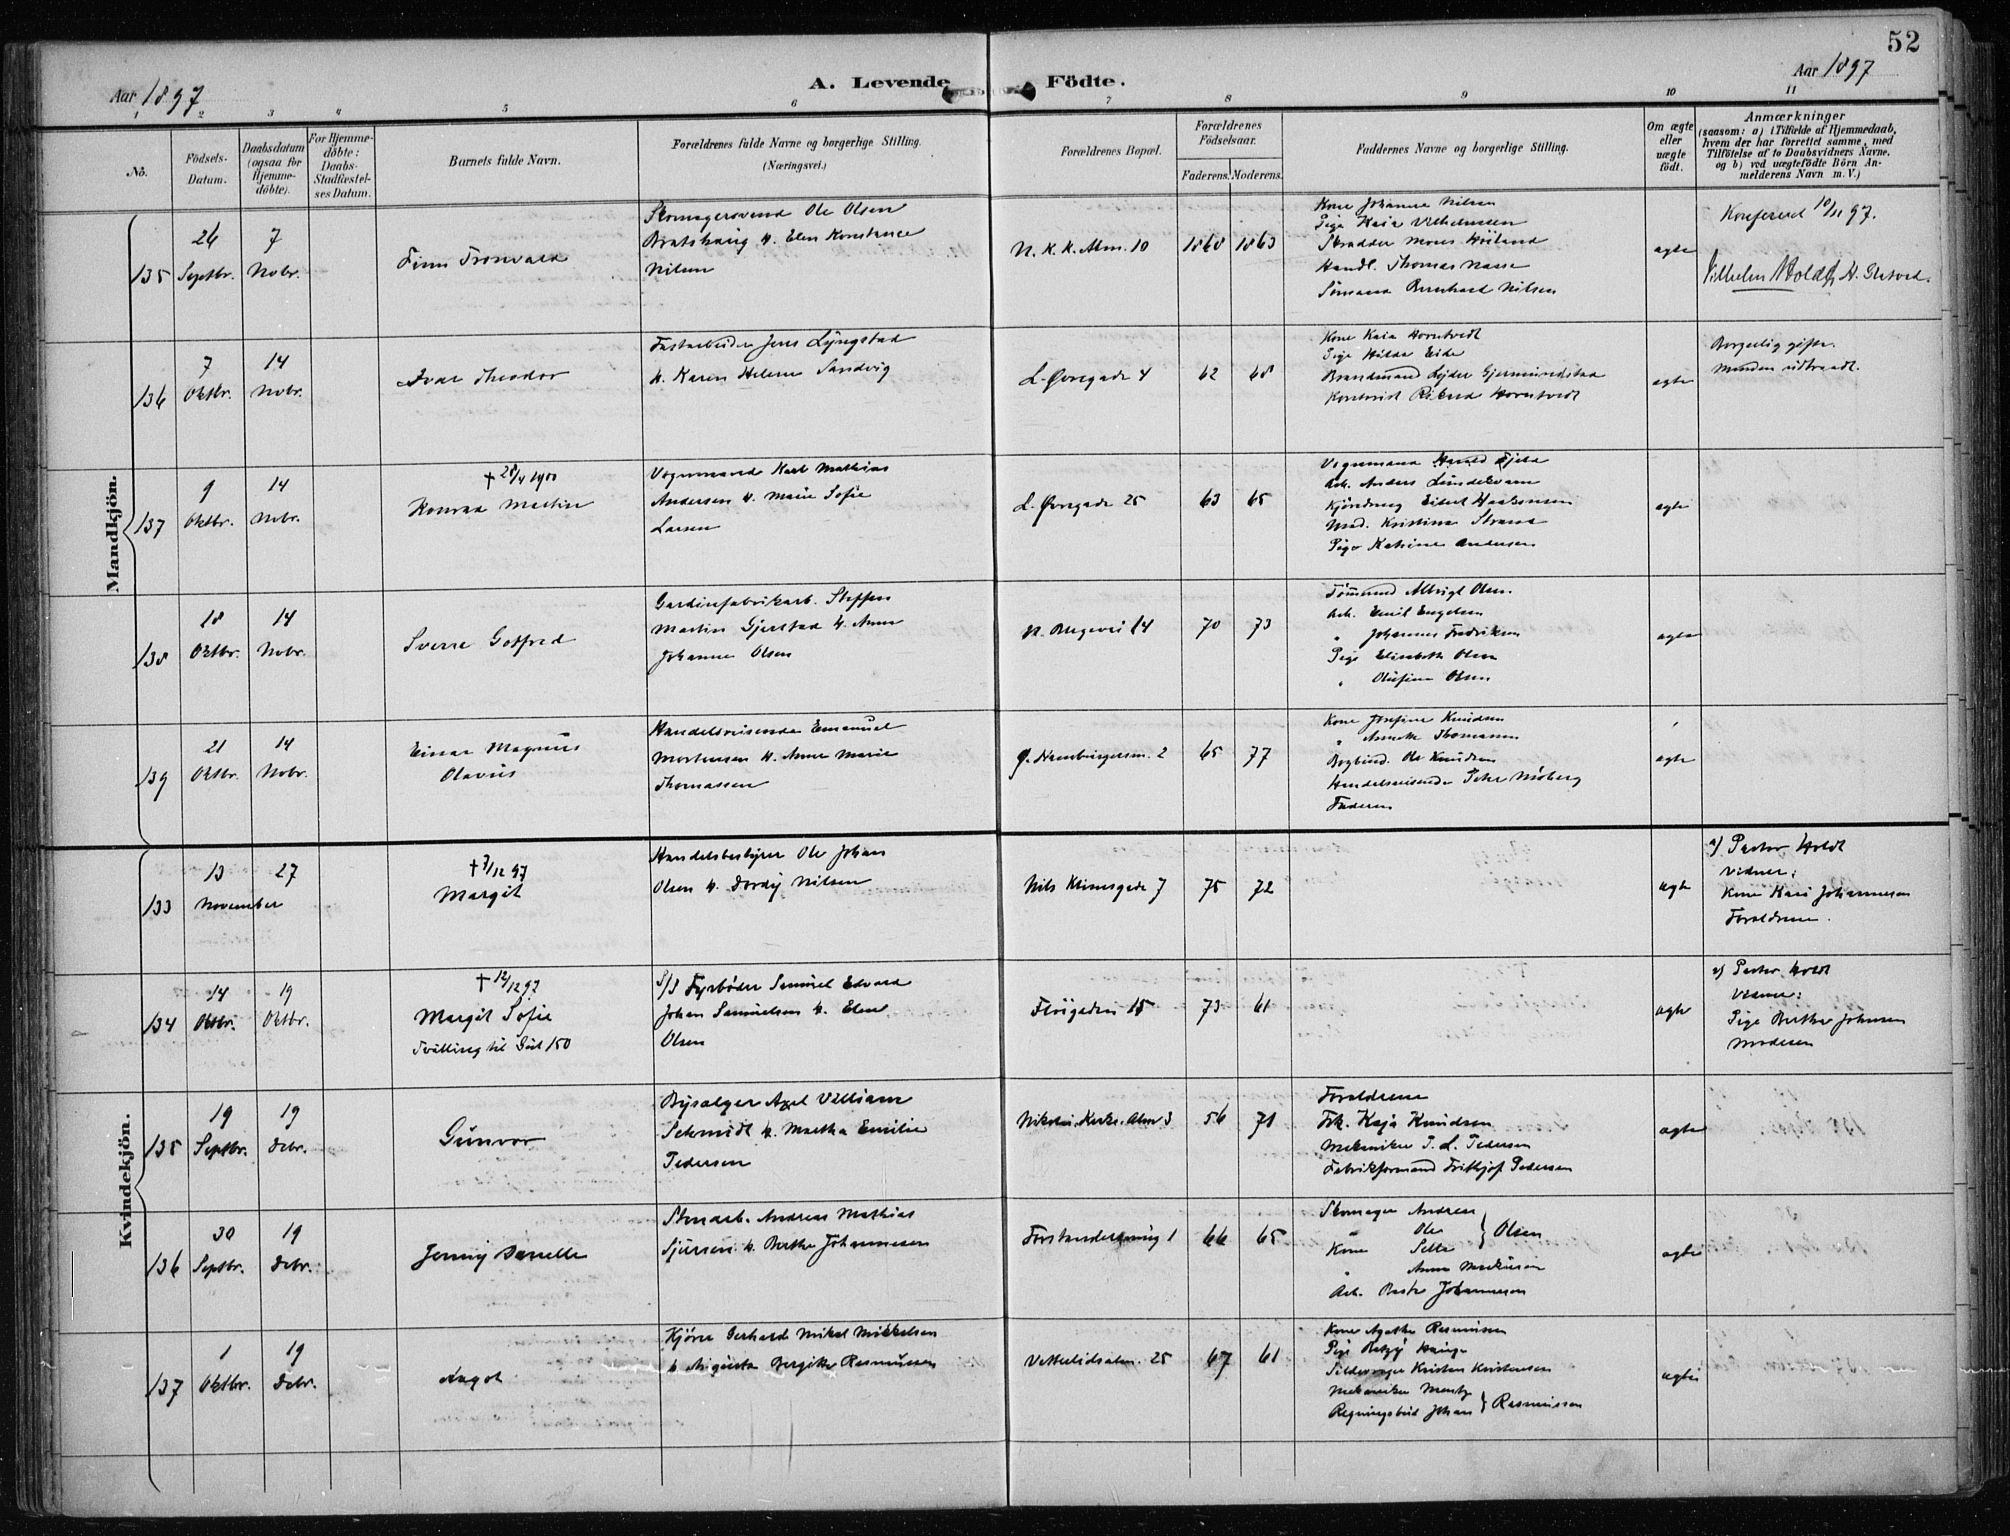 52
Aar 1897
A. Levende Födte.
Aar 1897
1 2 3 4 5 6 7 8 9 10 11
No.
Födsels-
Datum.
Daabsdatum
(ogsaa for
Hjemme-
döbte).
For Hjemme-
döbte:
Daabs-
Stadfæstel-
ses Datum.
Barnets fulde Navn.
Forældrenes fulde Navne og borgerlige Stilling.
(Næringsvei.)
Forældrenes Bopæl.
Forældrenes
Födselsaar.
Faderens. Moderens.
Faddernes Navne og borgerlige Stilling.
Om ægte
eller
uægte
födt.
Anmærkninger
(saasom: a) i Tilfælde af Hjemmedaab,
hvem der har forrettet samme, med
Tilföielse af to Daabsvidners Navne,
og b) ved uægtefödte Börn An-
melderens Navn m. V.)
Mandkjön.
135
26
Septbr.
7
Nobr.
Finn Tronvald
Skomagersvend Ole Olsen
Bratshaug h. Elen Konstance
Nilsen
N. K. K. Alm. 10
1868
1863
Kone Johanne Nilsen
Pige Kaia Vilhelmsen
Skrædder Mons Høiland
Handl. Thomas Næsse
Sømand Bernhard Nilsen
ægte
Konfereret 10/11 97.
Vilhelm Holdt
136
7
Oktbr.
14
Nobr.
Ivar Theodor
Fastarbeider Jens Lyngstad
h. Karen Helene Sandvig
L. Øvregade 4
62
68
Kone Kaia Horntvedt
Pige Hilda Eide
Brandmand Lejder Gjermundstad
Kontorist Rikard Horntvedt
ægte
Borgerlig gifte.
Manden udtraadt.
137
9
Oktbr.
14
Nobr.
+ 28/4 1900
Konrad Martin
Vognmand Karl Mathias
Andersen h. Marie Sofie
Larsen
L. Øvregade 25
63
65
Arb. Anders Lindekvam
Mad. Kristine Strand
Pige Katrine Andersen
ægte
138
18
Oktbr.
14
Nobr.
Sverre Gotfred
Gardinfabrikarb. Steffen
Martin Gjerstad h. Anna
Johanne Olsen
N. Bregevei 14
70
73
Tømmermd Albrigt Olsen
Arb. Emil Engelsen
" Johannes Fredriksen
Pige Elisabeth Olsen
" Olufine Olsen
ægte
139
21
Oktbr.
14
Nobr.
Einar Magnus
Olavus
Handelsreisende Emanuel
Mortensen h. Anne Marie
Thomassen
65
77
Kone Josefine Knudsen
Bogbind. Ole Knudsen
Handelsreisende Peter Moberg
Faderen
ægte
Kvindekjön.
133
13
27
November
+ 3/12 97
Margit
Handelsbestyrer Ole Johan
Olsen h. Dordy Nilsen
Nils Klimsgade 7
75
72
ægte
a) Pastor Holdt
Vidner:
Kone Kari Johannesen
Forældrene.
134
14
Oktbr.
19
Oktbr.
+ 12/12 97
Margit Sofie
Tvilling til Gut 150
S/S Fyrbøder Samuel Edvard
Johan Samuelsen h. Elen
Olsen
Fløigaden 15
73
61
ægte
a) Pastor Holdt
Vidner:
Pige Berthe Johnsen
Moderen
135
19
Septbr.
19
Debr.
Gunvor
Bysælger Axel Villiam
Schmidt h. Martha Emilie
Pedersen
Nikolai Kirke Alm 3
56
71
Forældrene
Frk. Kaja Knudsen
Mekaniker P. L. Pedersen
Fabrikformand Frithjof Pedersen
ægte
136
30
Septbr.
19
Debr.
Jenny Danelle
Stenarb. Andreas Mathias
Sjursen h. Berthe Johannesen
Forstandersmug 1
66
65
Skomager Andreas
" Ole } Olsen
Kone Selle
" Anna Markusen
Arb. Bertre Johannesen
ægte
137
1
Oktbr.
19
Debr.
Aagot
Kjører Gerhard Mikal Mikkelsen
h. Augusta Bergitte Rasmussen
Vetterlidsalm. 25
67
61
Kone Agathe Rasmussen
Pige Betzy Hauge
Sildevrager Kristen Kristensen
Mekaniker Mentz } Rasmussen
Regningsbud Johan
ægte